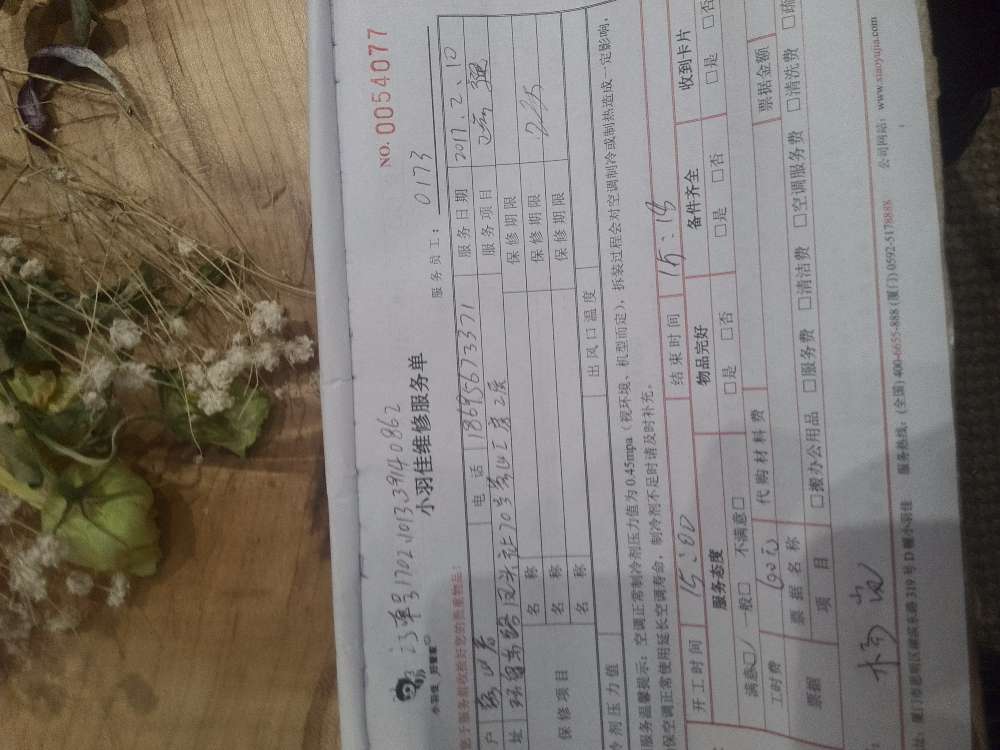 订单号1702101339140862
NO. 0054077
小羽佳 好管家
小羽佳维修服务单
服务员工: 0173
您于服务前收拾好您的贵重物品:
户
电 话 18695673371
服务日期 2017.2.10
址
服务项目
保修项目
名 称
保修期限
名 称
保修期限
名 称
保修期限
冷剂压力值
出风口温度
服务温馨提示: 空调正常制冷剂压力值为0.45mpa（视环境、机型而定），拆装过程会对空调制冷或制热造成一定影响,
保空调正常使用延长空调寿命，制冷剂不足时请及时补充。
开工时间 15:00
结束时间 15:18
服务态度
物品完好
备件齐全
收到卡片
满意□ 一般□ 不满意□
□是 □否
□是 □否
□是 □否
工时费
代购材料费
票据
票据名称
票据金额
项 目
□搬办公用品 □服务费 □清洁费 □空调服务费 □清洗费 □疏
址: 厦门市思明区湖滨东路319号D座小羽佳
服务热线: (全国) 400-6655-888 (厦门) 0592-5178888
公司网站: www.xiaoyujia.com